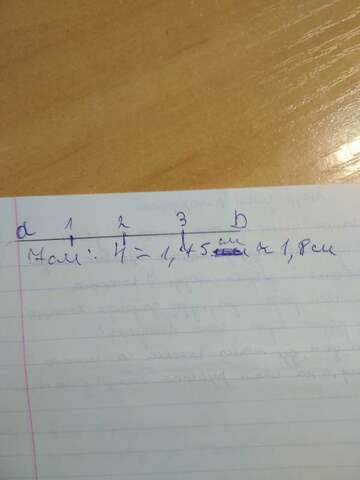 a 1 2 3 b
7см : 4 = 1,75 см ≈ 1,8см